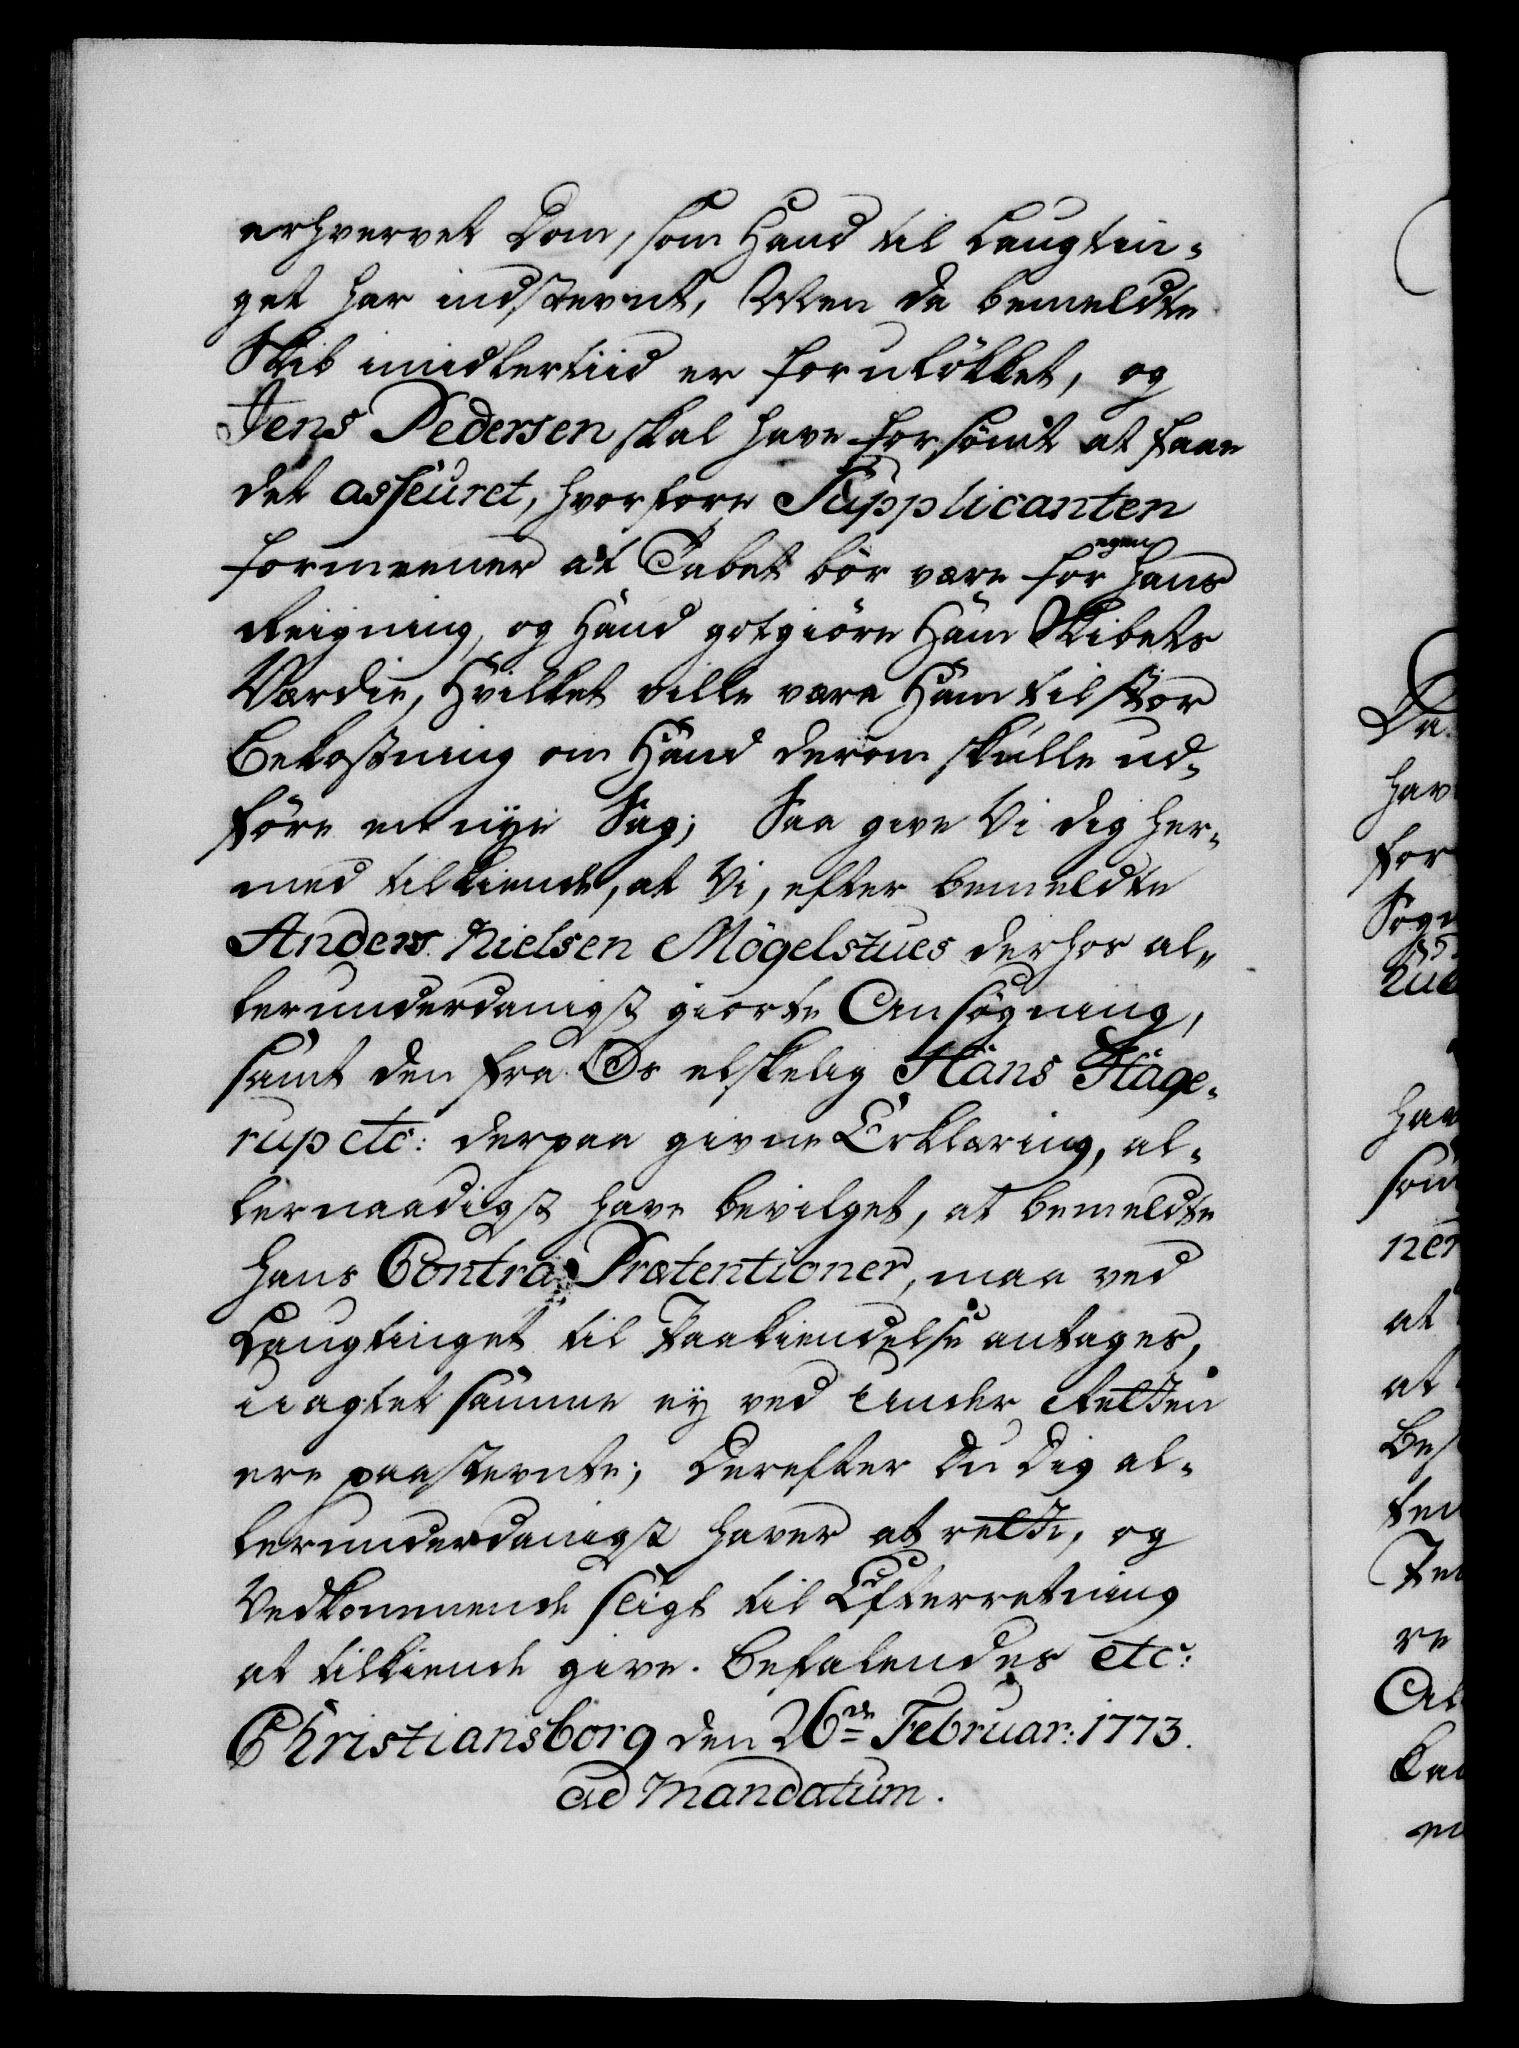 erhvervet Dom, som Hand til Laugtin-
get har indstevnt, Men da bemeldte
Skib imidlertiid er forulökket, og
Jens Pedersen skal have forsömt at faae
det asseuret, hvorfore Supplicanten
formeener at Tabet bör være for hans egen
Reigning, og Hand gotgiöre Ham Skibets
Værdie, Hvilket ville være Ham til stor
Bekostning om Hand derom skulle ud-
före en nye Sag; Saa give Vi dig her-
med tilkiende, at Vi, efter bemeldte
Anders Nielsen Mögelstues derhos al-
lerunderdanigst giorte Ansögning,
samt den fra Os elskelig Hans Hage-
rup etc: derpaa givne Erklæring, al-
lernaadigst have bevilget, at bemeldte
hans Contra-Prætentioner, maa ved
Laugtinget til Paakiendelse antages,
uagtet samme ey ved Under Retten
ere paastevnte; Derefter Du dig al-
lerunderdanigst haver at rette, og
Vedkommende sligt til Efterretning
at tilkiende give. Befalendes etc:
Christiansborg den 26de Februar: 1773.
ad Mandatum.